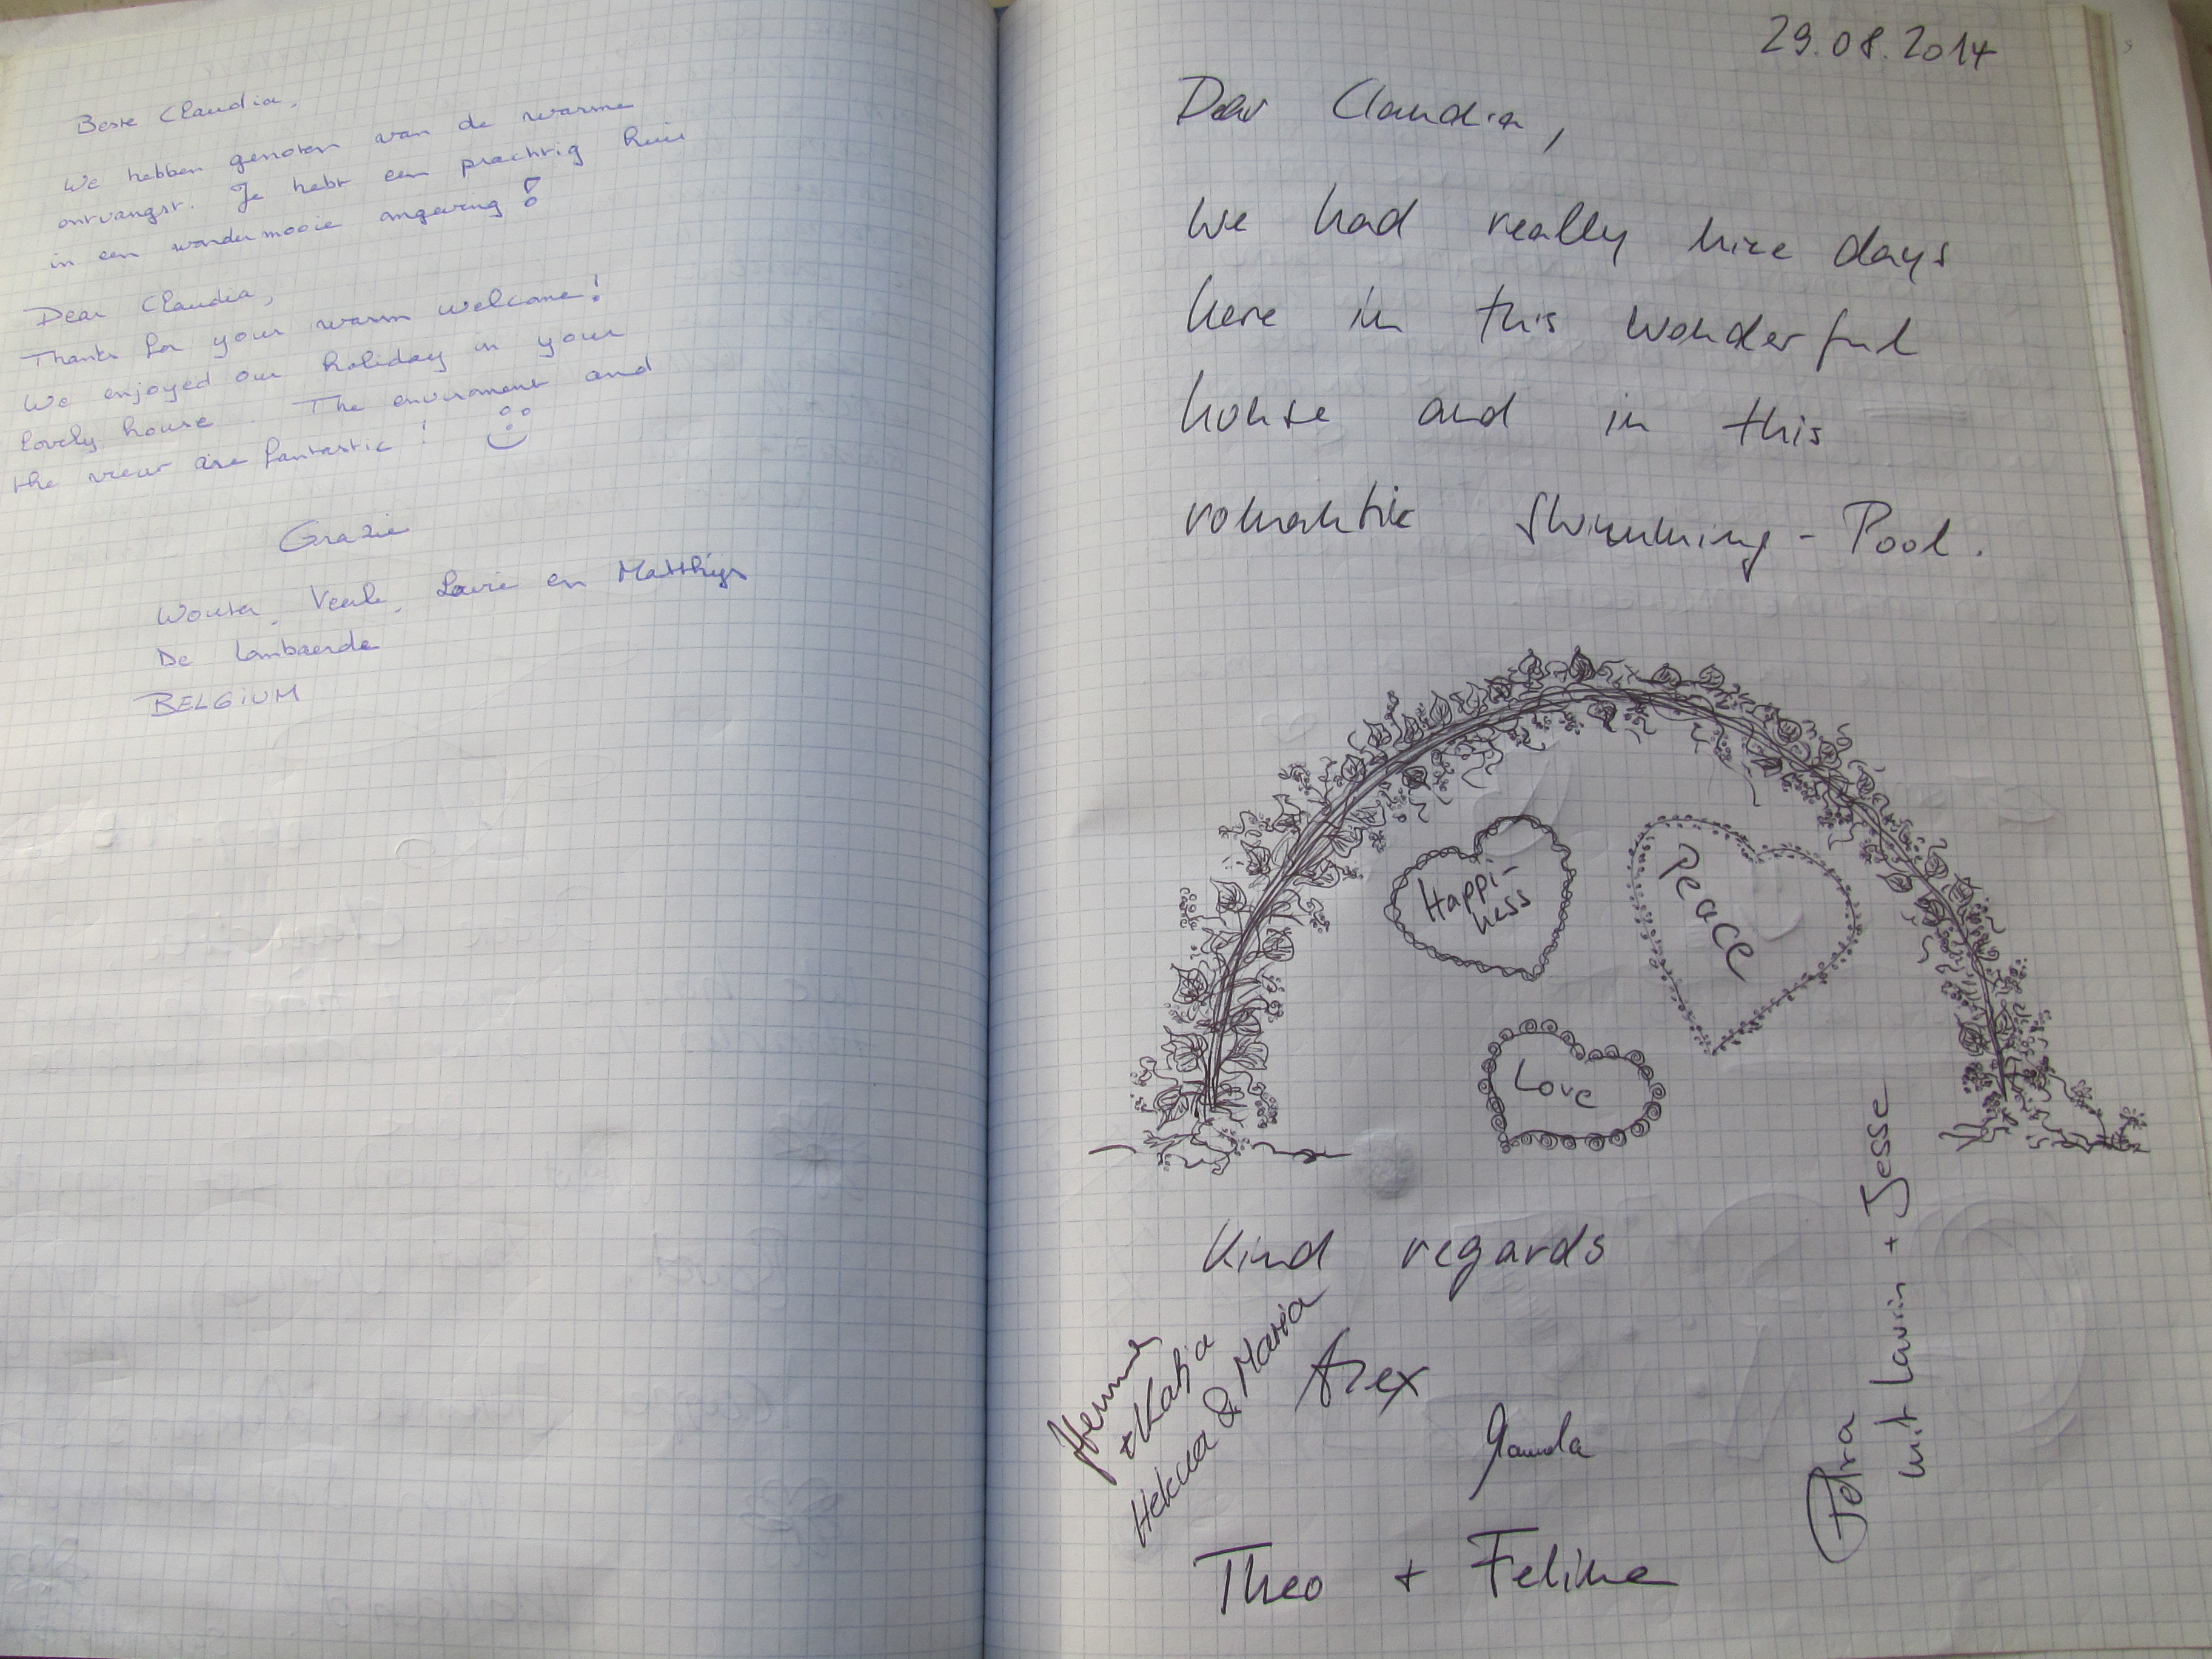 Beste Claudia,
We hebben genoten van de warme
ontvangst. Je hebt een prachtig huis
in een wondermooie omgeving!
Dear Claudia,
Thanks for your warm welcome!
We enjoyed our holiday in your
lovely house. The enviroment and
the view are fantastic!
Grazie
Wouter, Veerle, Laure en Matthijs
De Lombaerde
BELGIUM
29.08.2014
Dear Claudia,
we had really nice days
here in this wonderful
house and in this
romantic Swimming-Pool.
Happi-
ness
Peace
Love
Kind regards
Petra
mit Laurin + Jesse
Theo + Feline